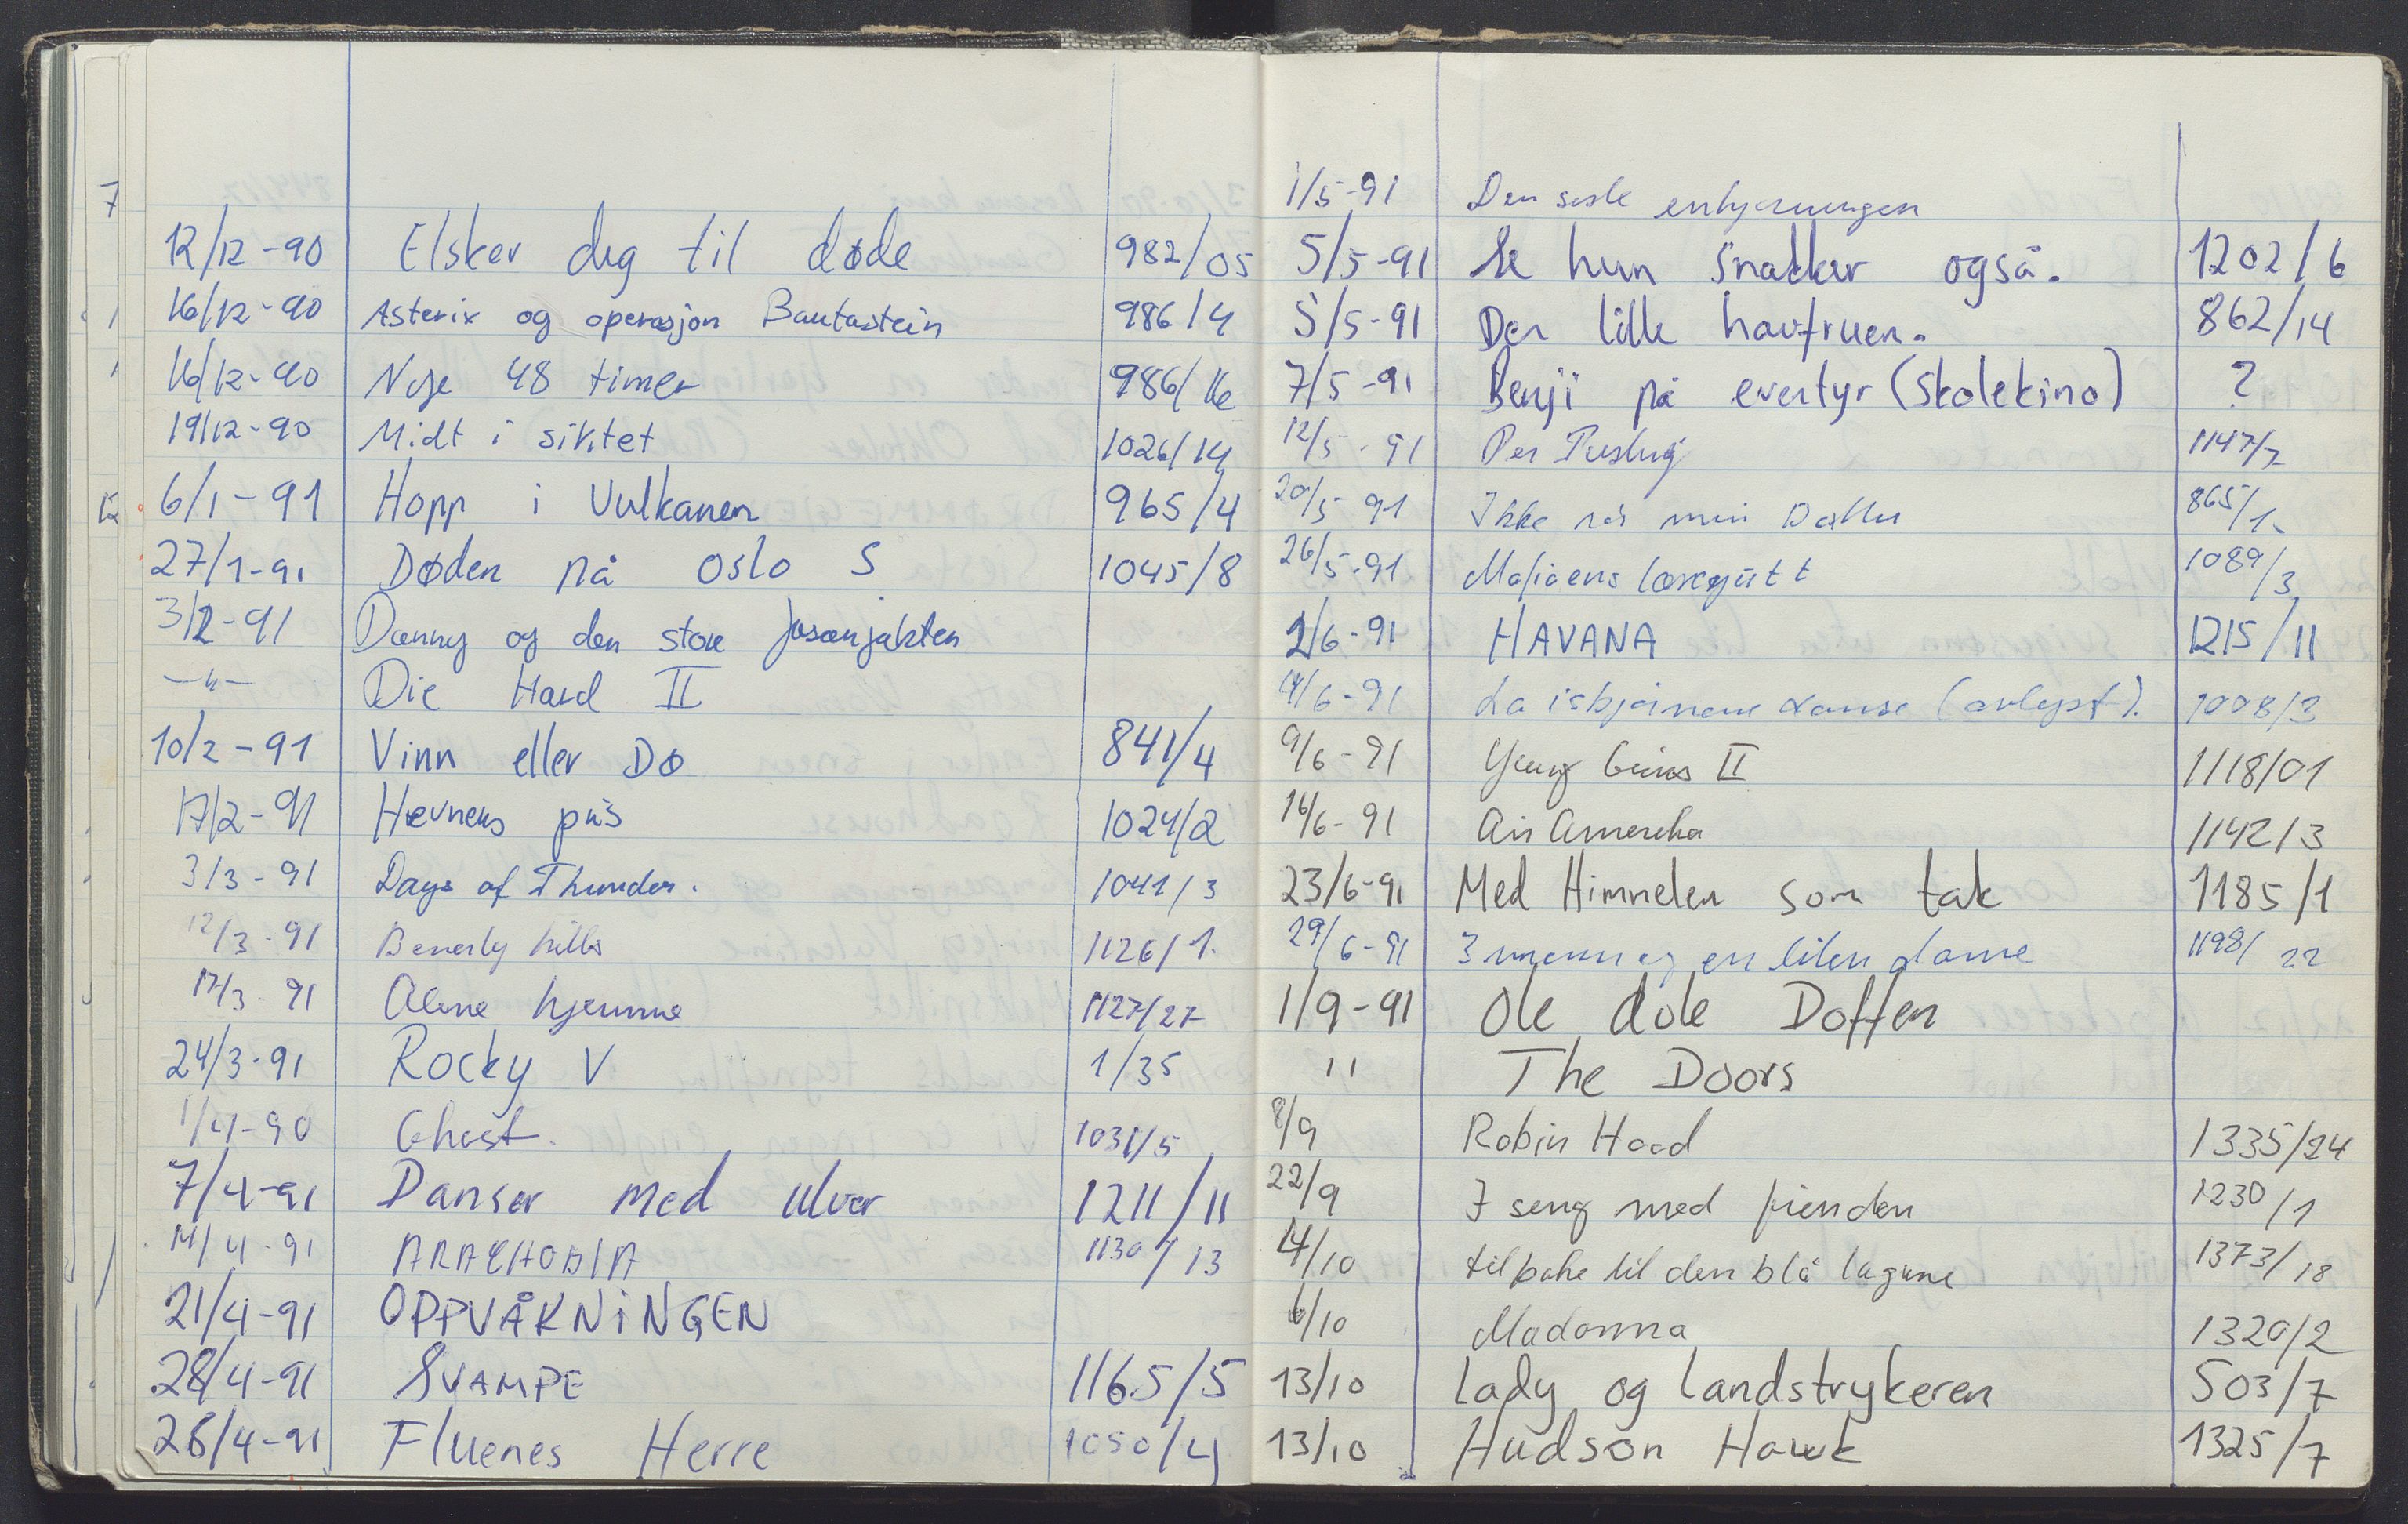 7
12/12-90 Elsker deg til døde 982/05
16/12-90 Asterix og operasjon Bautastein 986/4
16/12-90 Nye 48 timer 986/16
19/12-90 Midt i siktet 1026/14
6/1-91 Hopp i Vulkanen 965/4
27/1-91 Døden på Oslo S 1045/8
3/2-91 Danny og den store fasanjakten
—"— Die Hard II
10/2-91 Vinn eller Dø 841/4
17/2-91 Hevnens pris 1024/2
3/3-91 Days of Thunder. 1041/3
12/3-91 Beverly hills 1126/1.
17/3-91 Alene hjemme 1127/27
24/3-91 Rocky V 1/35
1/4-90 Ghost. 1031/5
7/4-91 Danser med ulver 1211/11
14/4-91 1130/13
21/4-91 OPPVÅKNiNGEN
28/4-91 SVAMPE 1165/5
28/4-91 Fluenes Herre 1050/4
1/5-91 Den siste enhjørningen
5/5-91 Se hun snakker også. 1202/6
5/5-91 Den lille havfruen. 862/14
7/5-91 Benji på eventyr (Skolekino) ?
12/5-91 Per 1147/7
20/5-91 Ikke når min Datter 865/1.
26/5-91 Mafiaens læregutt 1089/3
2/6-91 HAVANA 1215/11
4/6-91 La isbjørnene danse (avlyst). 1008/3
9/6-91 Young Guns II 1118/01
16/6-91 Air Amerika 1142/3
23/6-91 Med Himmelen som tak 1185/1
29/6-91 3 menn og en liten dame 1198/22
1/9-91 Ole dole Doffen
11 The Doors
8/9 Robin Hood 1335/24
22/9 I seng med fienden 1230/1
4/10 tilbake til den blå lagune 1373/18
6/10 Madonna 1320/2
13/10 Lady og Landstrykeren 503/7
13/10 Hudson Hawk 1325/7